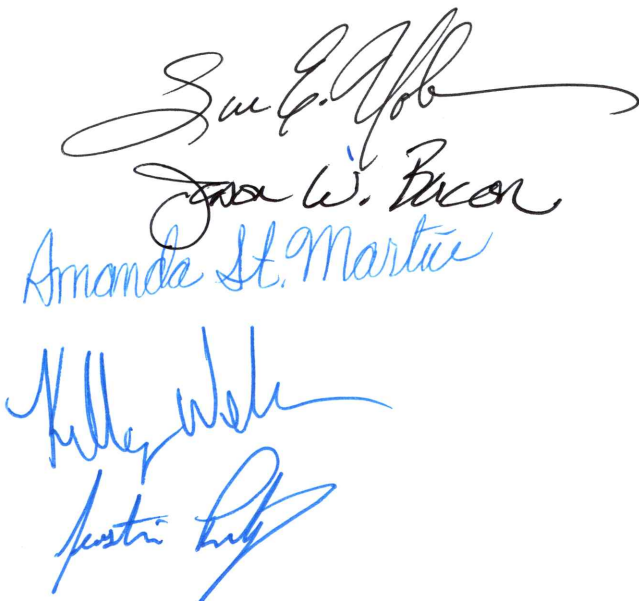 Sue E.
Jason W. Bacon
Amanda St. Martin
Kelley
Justin